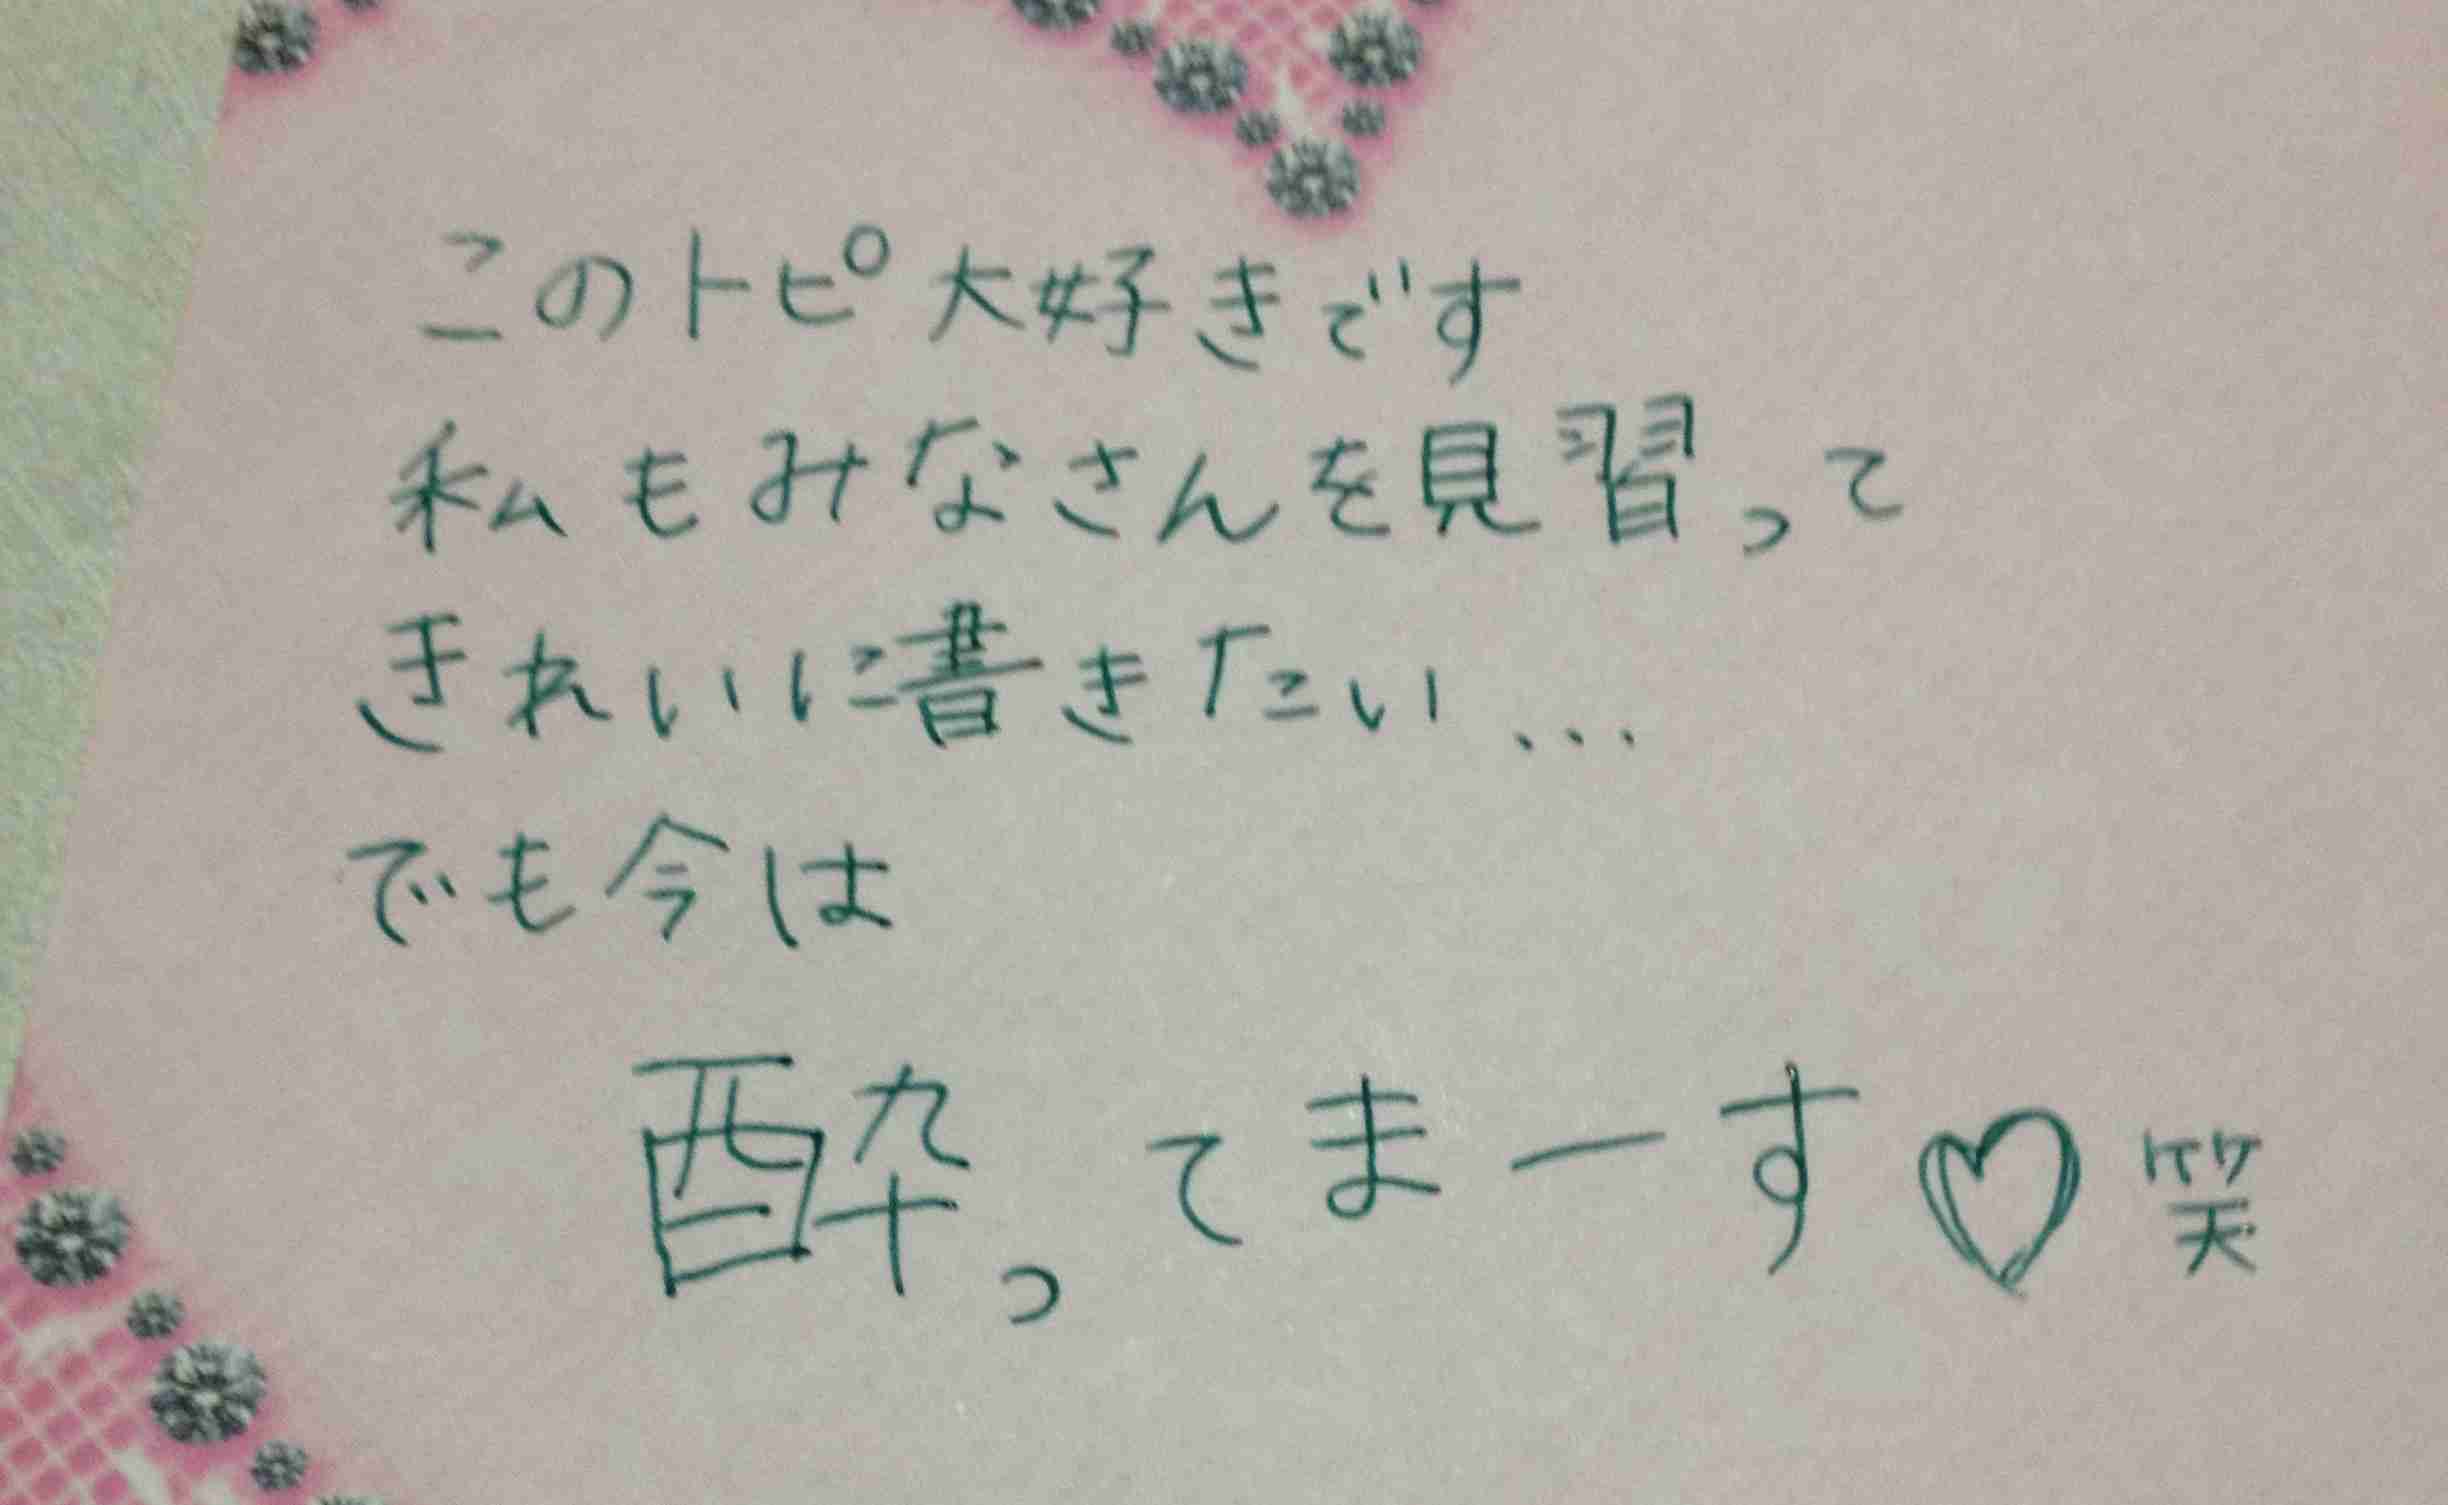 このトピ大好きです
私もみなさんを見習って
きれいに書きたい…
でも今は
酔ってまーす♡笑